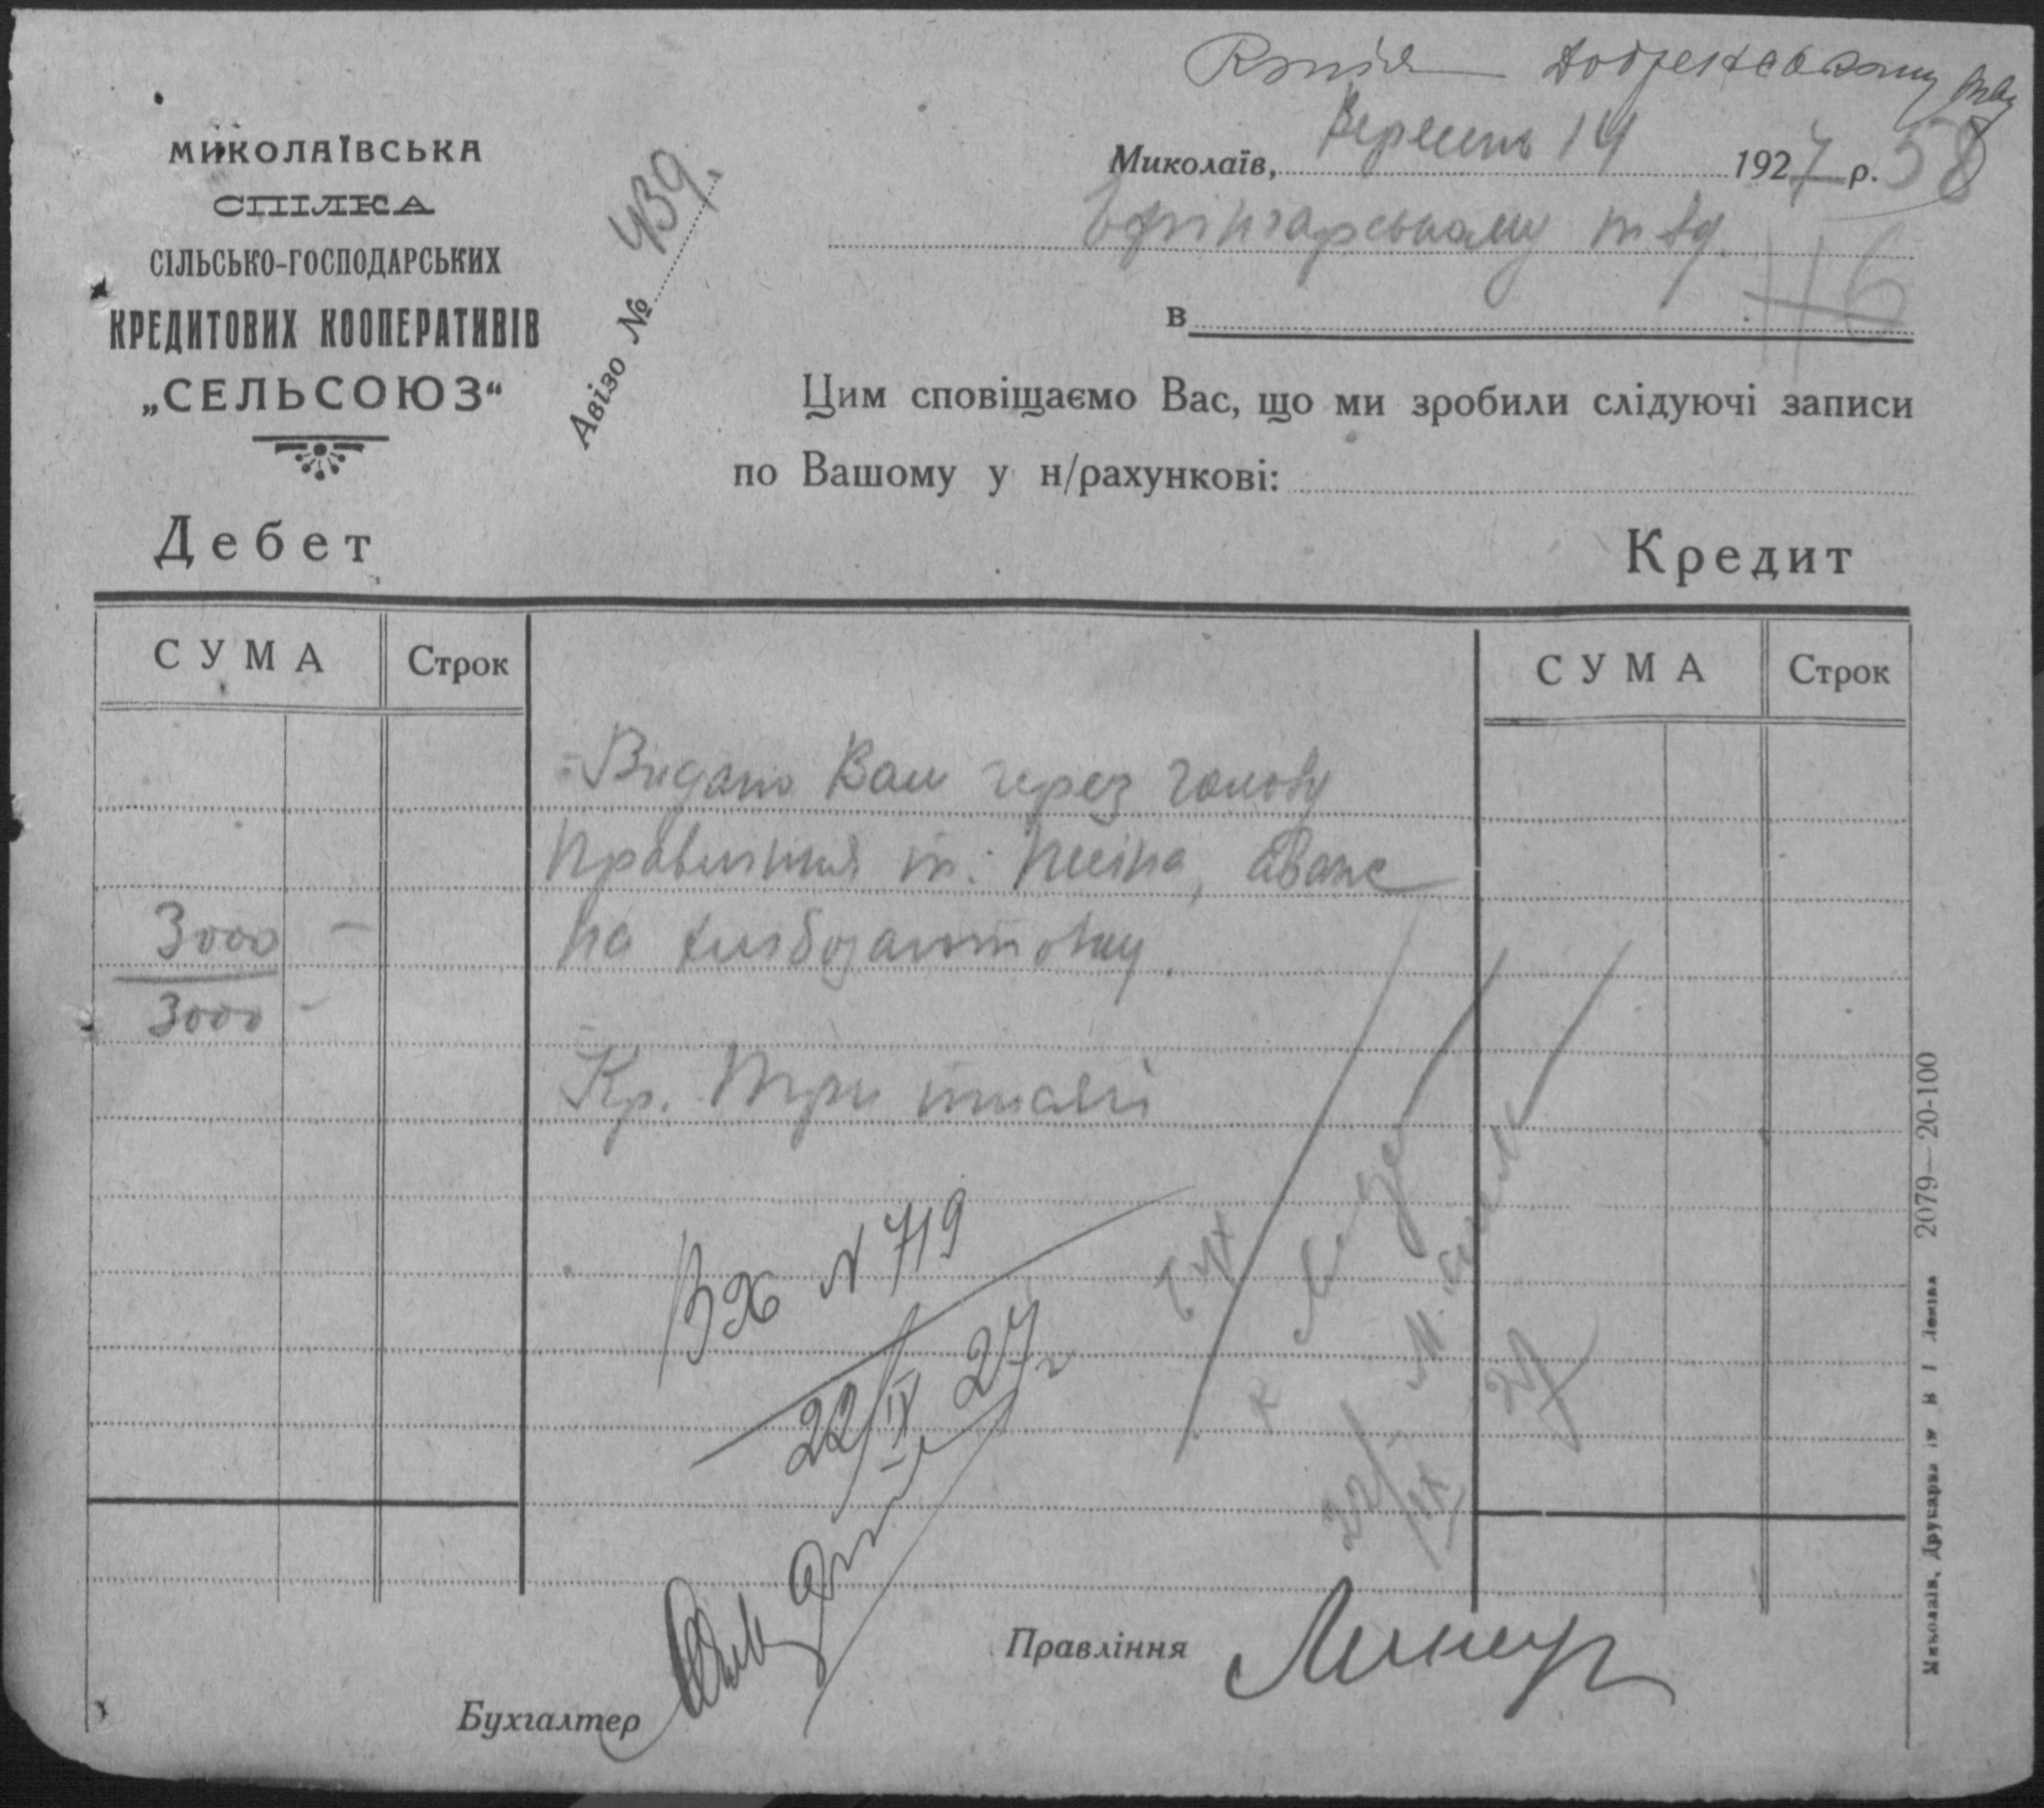 Копія Добренському т-ву
МИКОЛАЇВСЬКА
СПІЛКА
СІЛЬСЬКО-ГОСПОДАРСЬКИХ
КРЕДИТОВИХ КООПЕРАТИВІВ
„СЕЛЬСОЮЗ“
Авізо № 439.
Миколаїв, Вересень 14 1927 р. 58
Ефінгарському т-ву.
в
116
Цим сповіщаємо Вас, що ми зробили слідуючі записи
по Вашому у н/рахункові:
Дебет
Кредит
СУМА Строк
СУМА Строк
Видано Вам через голову
правління т. аванс
3000 — на хлібозаготовку.
3000 -
Кр. Три тисячі
Вх N 719
22/IX 27 г
Бух
22/IX 27
Бухгалтер
Правління
Миколаїв, Друкарня ім В І Леніна 2079—20-100